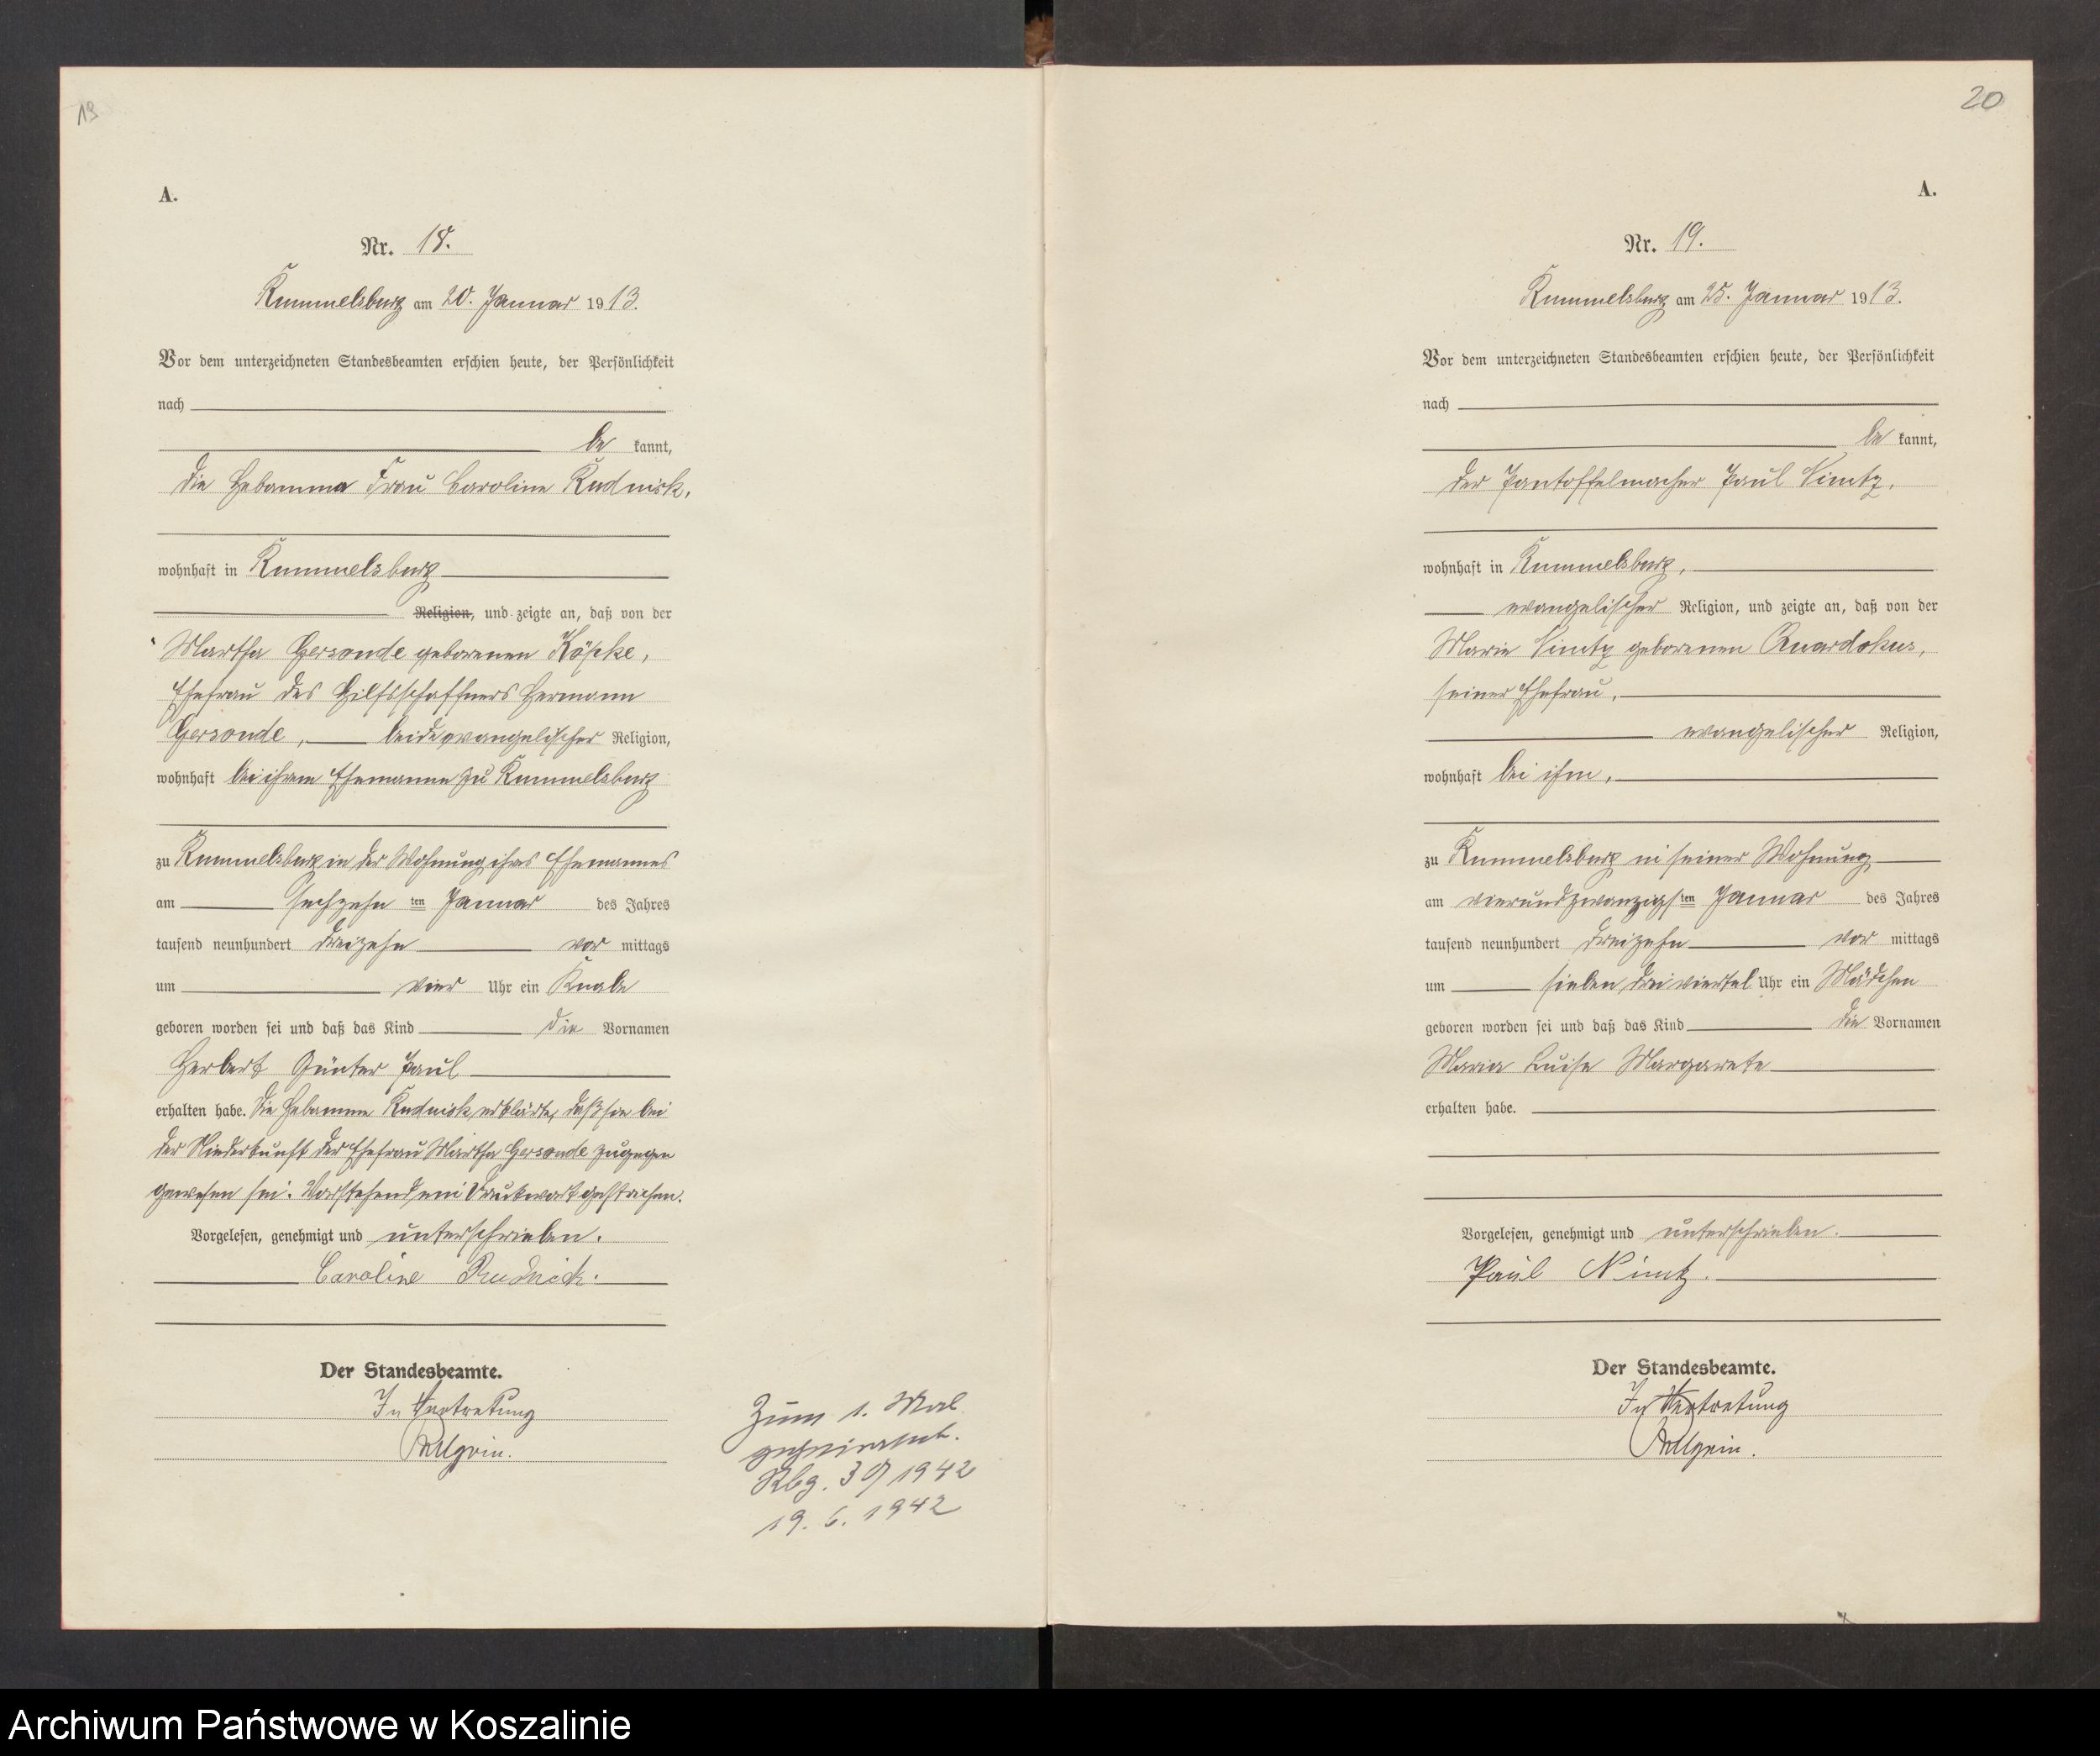 19
A.
Nr. 18.
Rummelsburg am 20. Januar 1913.
Vor dem unterzeichneten Standesbeamten erschien heute, der Persönlichkeit
nach
be kannt,
die Hebamme Frau Caroline Rudnick,
wohnhaft in Rummelsburg
Religion, und zeigte an, daß von der
Martha Gersonde geborenen Köpke,
Ehefrau des Hilfsschaffners Hermann
Gersonde, beide evangelischer Religion,
wohnhaft bei ihrem Ehemanne zu Rummelsburg
zu Rummelsburg in der Wohnung ihres Ehemannes
am sechzehn ten Januar des Jahres
tausend neunhundert dreizehn vor mittags
um vier Uhr ein Knabe
geboren worden sei und daß das Kind die Vornamen
Herbert Günter Paul
erhalten habe. Die Hebamme Rudnick erklärte, daß sie bei
der Niederkunft der Ehefrau Martha Gersonde zugegen
gewesen sei. Vorstehend ein Druckwort gestrichen.
Vorgelesen, genehmigt und unterschrieben.
Caroline Rudnick.
Der Standesbeamte.
In Vertretung
Zum 1. Mal
geheiratet.
Rbg. 30/1942
19. 6. 1942
20
A.
Nr. 19.
Rummelsburg am 25. Januar 1913.
Vor dem unterzeichneten Standesbeamten erschien heute, der Persönlichkeit
nach
be kannt,
der Pantoffelmacher Paul Nimtz,
wohnhaft in Rummelsburg,
evangelischer Religion, und zeigte an, daß von der
Marie Nimtz geborenen Quardokus,
seiner Ehefrau,
evangelischer Religion,
wohnhaft bei ihm,
zu Rummelsburg in seiner Wohnung
am vierundzwanzigsten Januar des Jahres
tausend neunhundert dreizehn vor mittags
um sieben drei viertel Uhr ein Mädchen
geboren worden sei und daß das Kind die Vornamen
Maria Luise Margarete
erhalten habe.
Vorgelesen, genehmigt und unterschrieben.
Paul Nimtz.
Der Standesbeamte.
In Vertretung
Archiwum Państwowe w Koszalinie